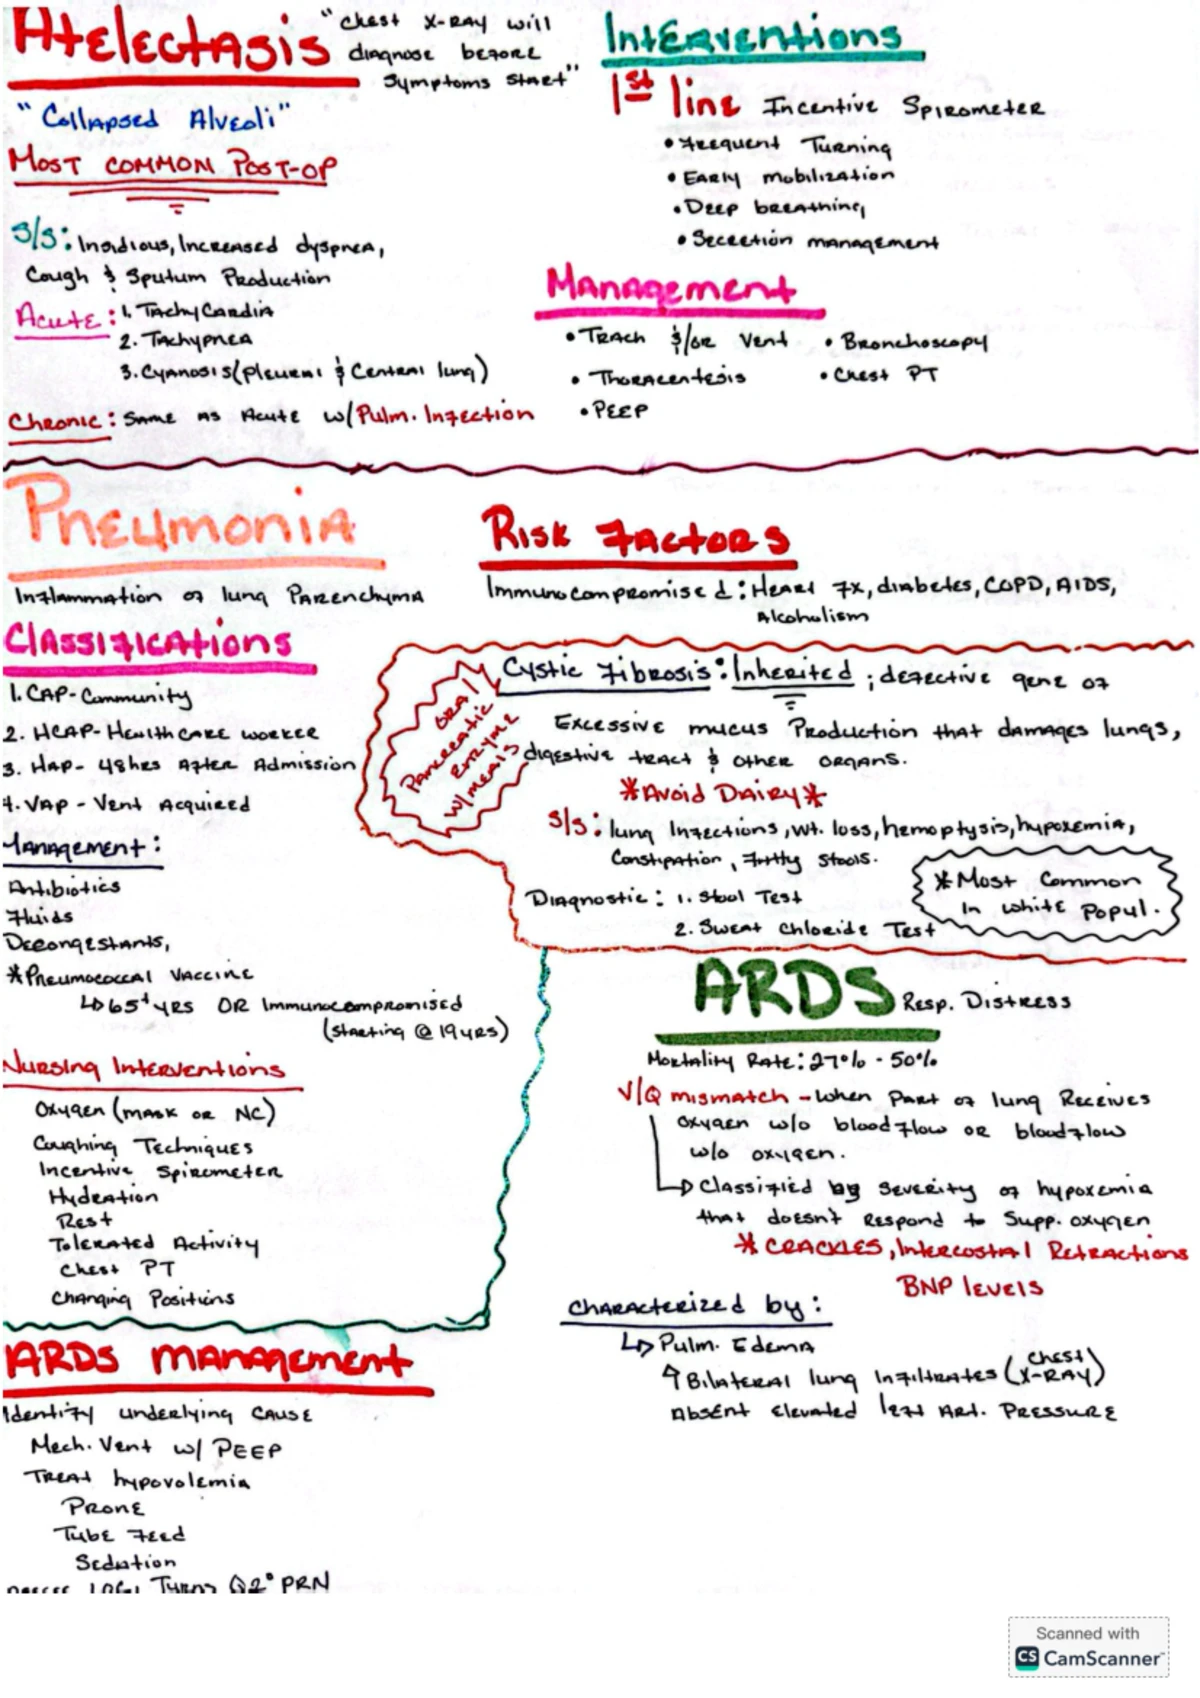 Atelectasis
"Chest X-Ray will
diagnose before
Symptoms start"
"Collapsed Alveoli"
Most common Post-op
S/S: Insidious, Increased dyspnea,
Cough & Sputum Production
Acute: 1. Tachycardia
2. Tachypnea
3. Cyanosis (pleural & Central lung)
Chronic: Same as Acute w/ Pulm. Infection
Interventions
1st line Incentive Spirometer
• Frequent Turning
• Early mobilization
• Deep breathing
• Secretion management
Management
• Trach &/or Vent
• Thoracentesis
• PEEP
• Bronchoscopy
• Chest PT
Pneumonia
Inflammation of lung Parenchyma
Classifications
1. CAP - Community
2. HCAP - Healthcare worker
3. HAP - 48hrs After Admission
4. VAP - Vent Acquired
Management:
Antibiotics
Fluids
Decongestants,
*Pneumococcal vaccine
↳ 65+ yrs OR Immunocompromised
(starting @ 19 yrs)
Nursing Interventions
Oxygen (mask or NC)
Coughing Techniques
Incentive Spirometer
Hydration
Rest
Tolerated Activity
Chest PT
Changing Positions
Risk Factors
Immunocompromised: Heart Fx, diabetes, COPD, AIDS,
Alcoholism
Oral
Pancreatic
Enzyme
w/meals
Cystic Fibrosis: Inherited; defective gene of
Excessive mucus Production that damages lungs,
digestive tract & other organs.
*Avoid Dairy*
S/S: lung Infections, wt. loss, hemoptysis, hypoxemia,
Constipation, Fatty stools.
Diagnostic: 1. Stool Test
2. Sweat Chloride Test
*Most Common
In white Popul.
ARDS Resp. Distress
Mortality Rate: 27% - 50%
V/Q mismatch - When part of lung Receives
oxygen w/o bloodflow or bloodflow
w/o oxygen.
↳ Classified by Severity of hypoxemia
that doesn't respond to Supp. oxygen
* CRACKLES, Intercostal Retractions
BNP levels
Characterized by:
↳ Pulm. Edema
↑ Bilateral lung Infiltrates (Chest X-Ray)
Absent Elevated left Art. Pressure
ARDS management
Identify underlying cause
Mech. Vent w/ PEEP
Treat hypovolemia
Prone
Tube Feed
Sedation
Turns Q2° PRN
Scanned with
CS CamScanner